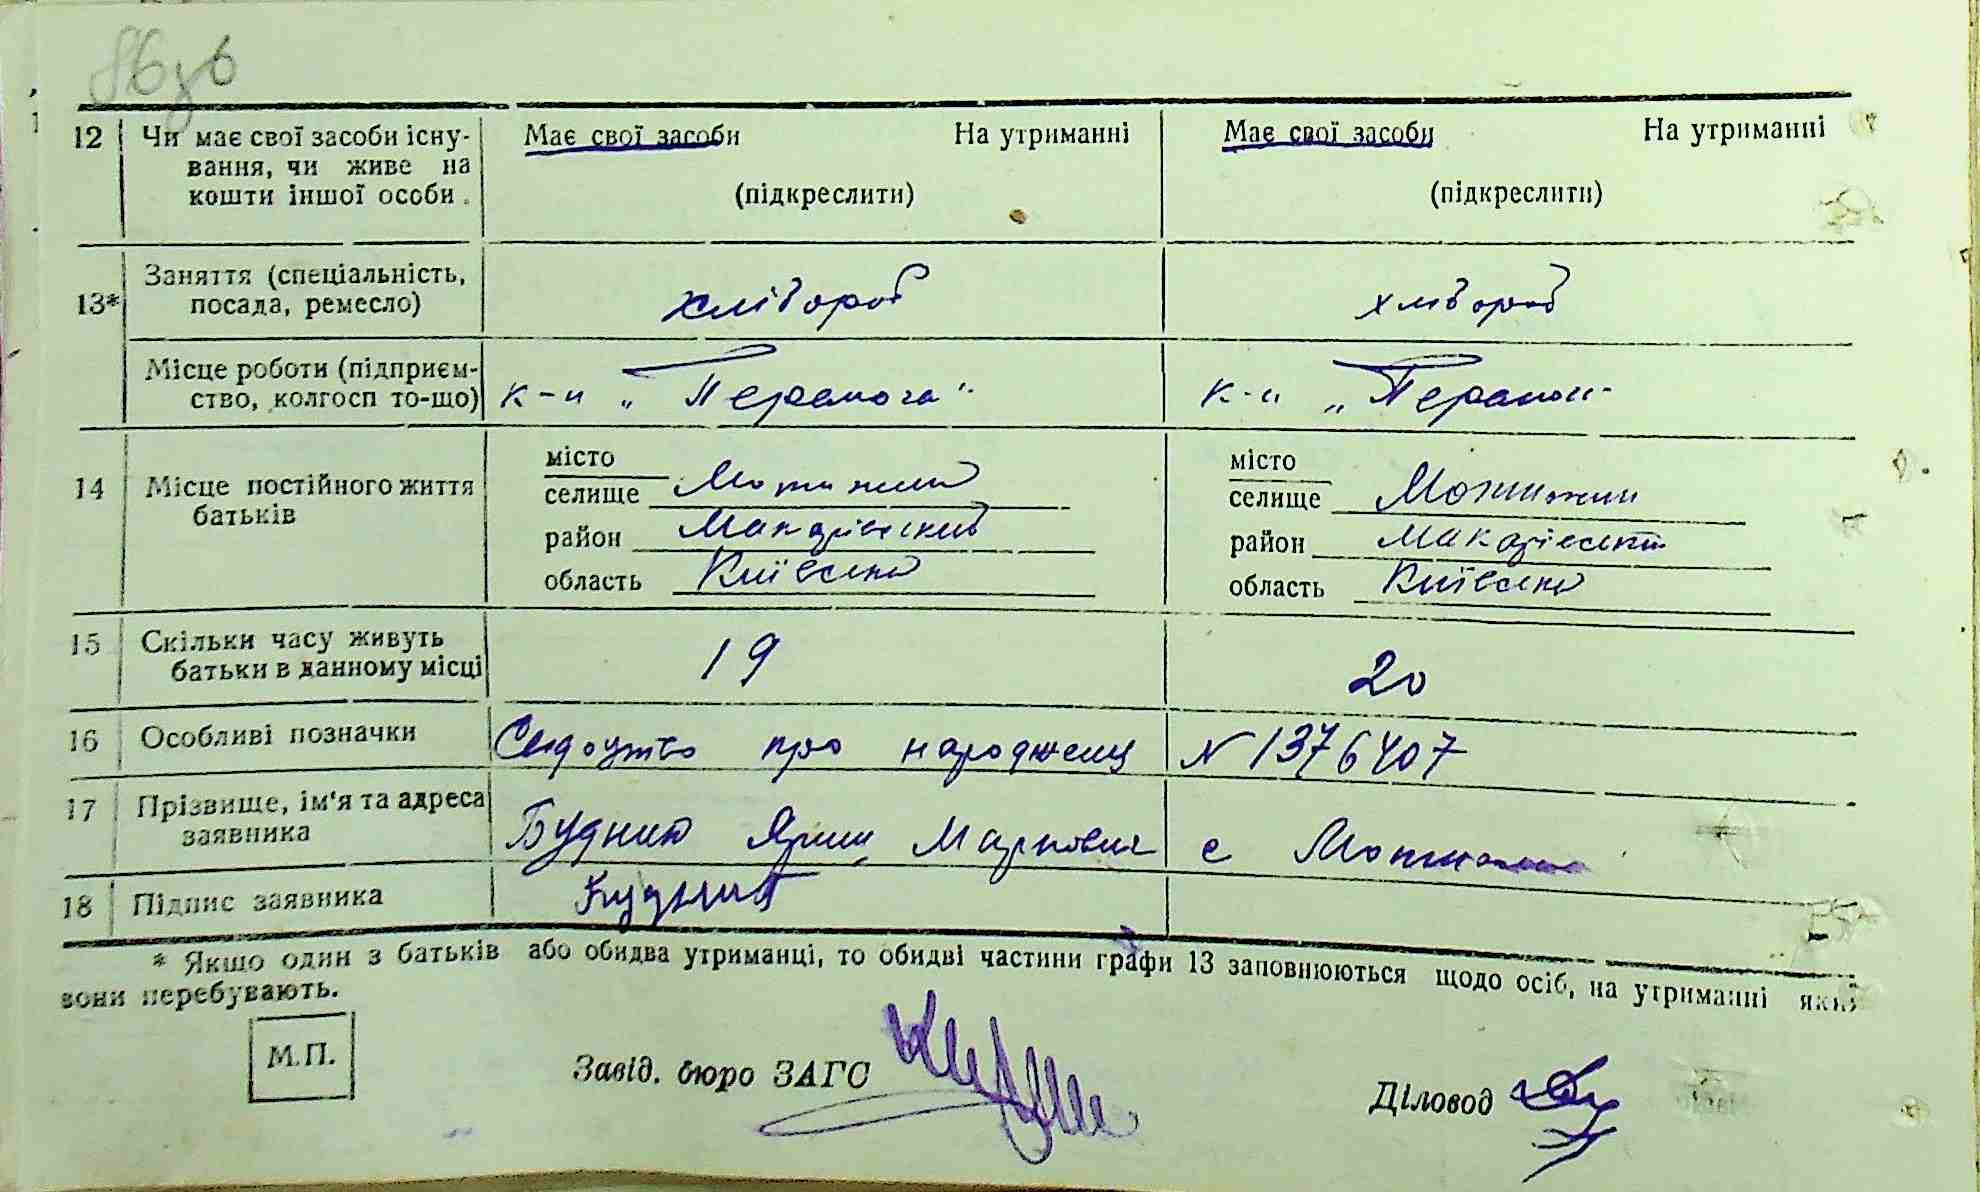 12 Чи має свої засоби існу- Має свої засоби На утриманні Має свої засоби На утриманні
вання, чи живе на
кошти іншої особи. (підкреслити) (підкреслити)
Заняття (спеціальність,
13* посада, ремесло) хлібороб хлібороб
Місце роботи (підприєм-
ство, колгосп то-що) к-п „Перемога"  к-п
місто місто
14 Місце постійного життя селище Мотижин селище Мотижин
батьків район Макарівський район Макарівськ
область Київська область Київська
15 Скільки часу живуть
батьки в данному місці 19 20
16 Особливі позначки Свідоцтво про народженя N 1376407
17 Прізвище, ім'я та адреса
заявника Будник Маркович с Мотижин
18 Підпис заявника Будник
* Якщо один з батьків або обидва утриманці, то обидві частини графи 13 заповнюються щодо осіб, на утриманні яких
вони перебувають.
М.П. Завід. бюро ЗАГС Діловод